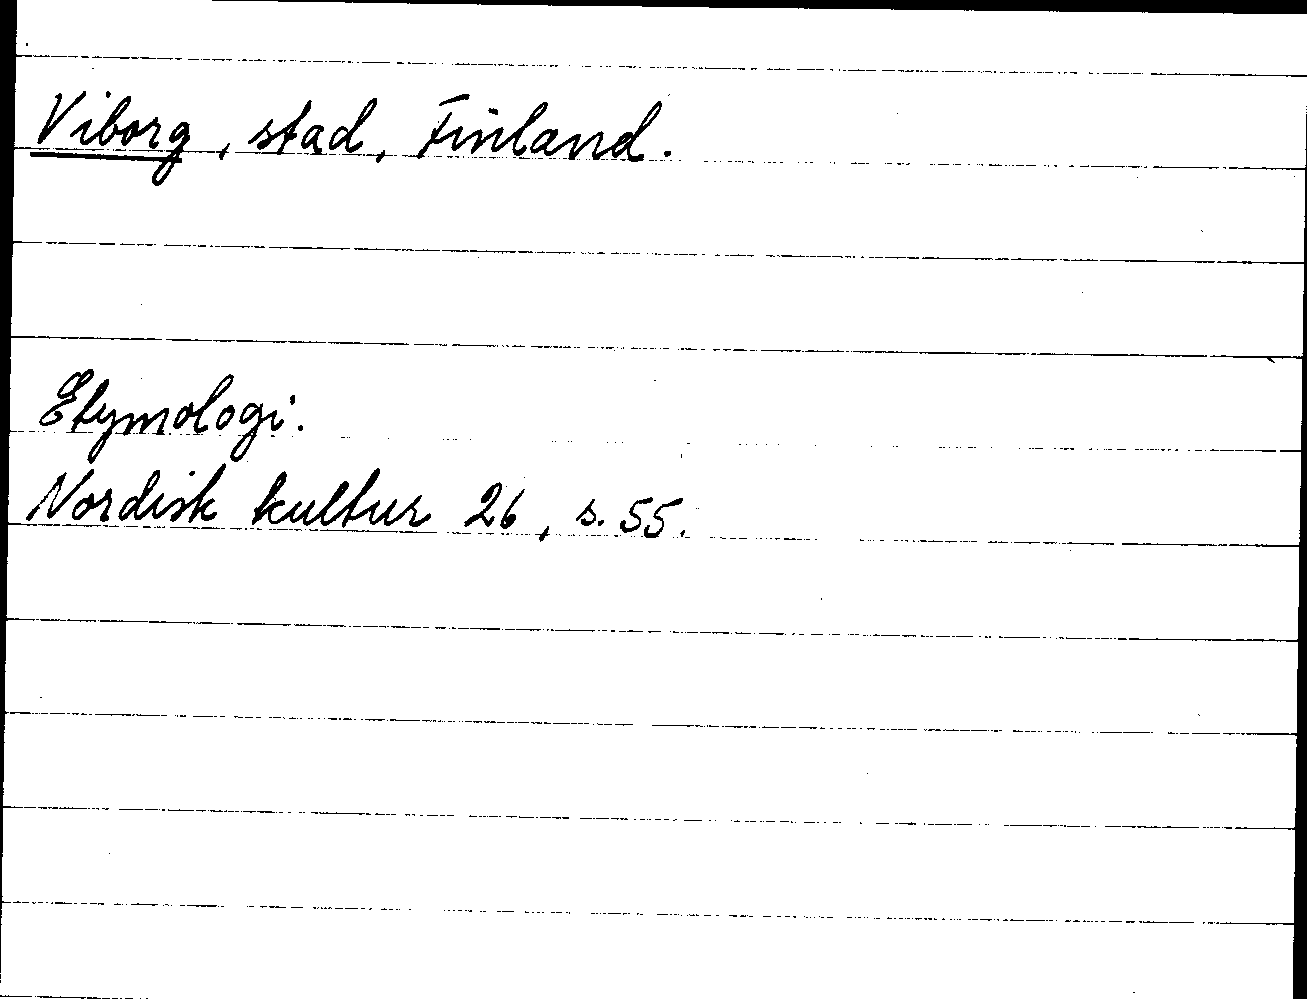 Viborg, stad, Finland.
Etymologi.
Nordisk kultur 26, s. 55.